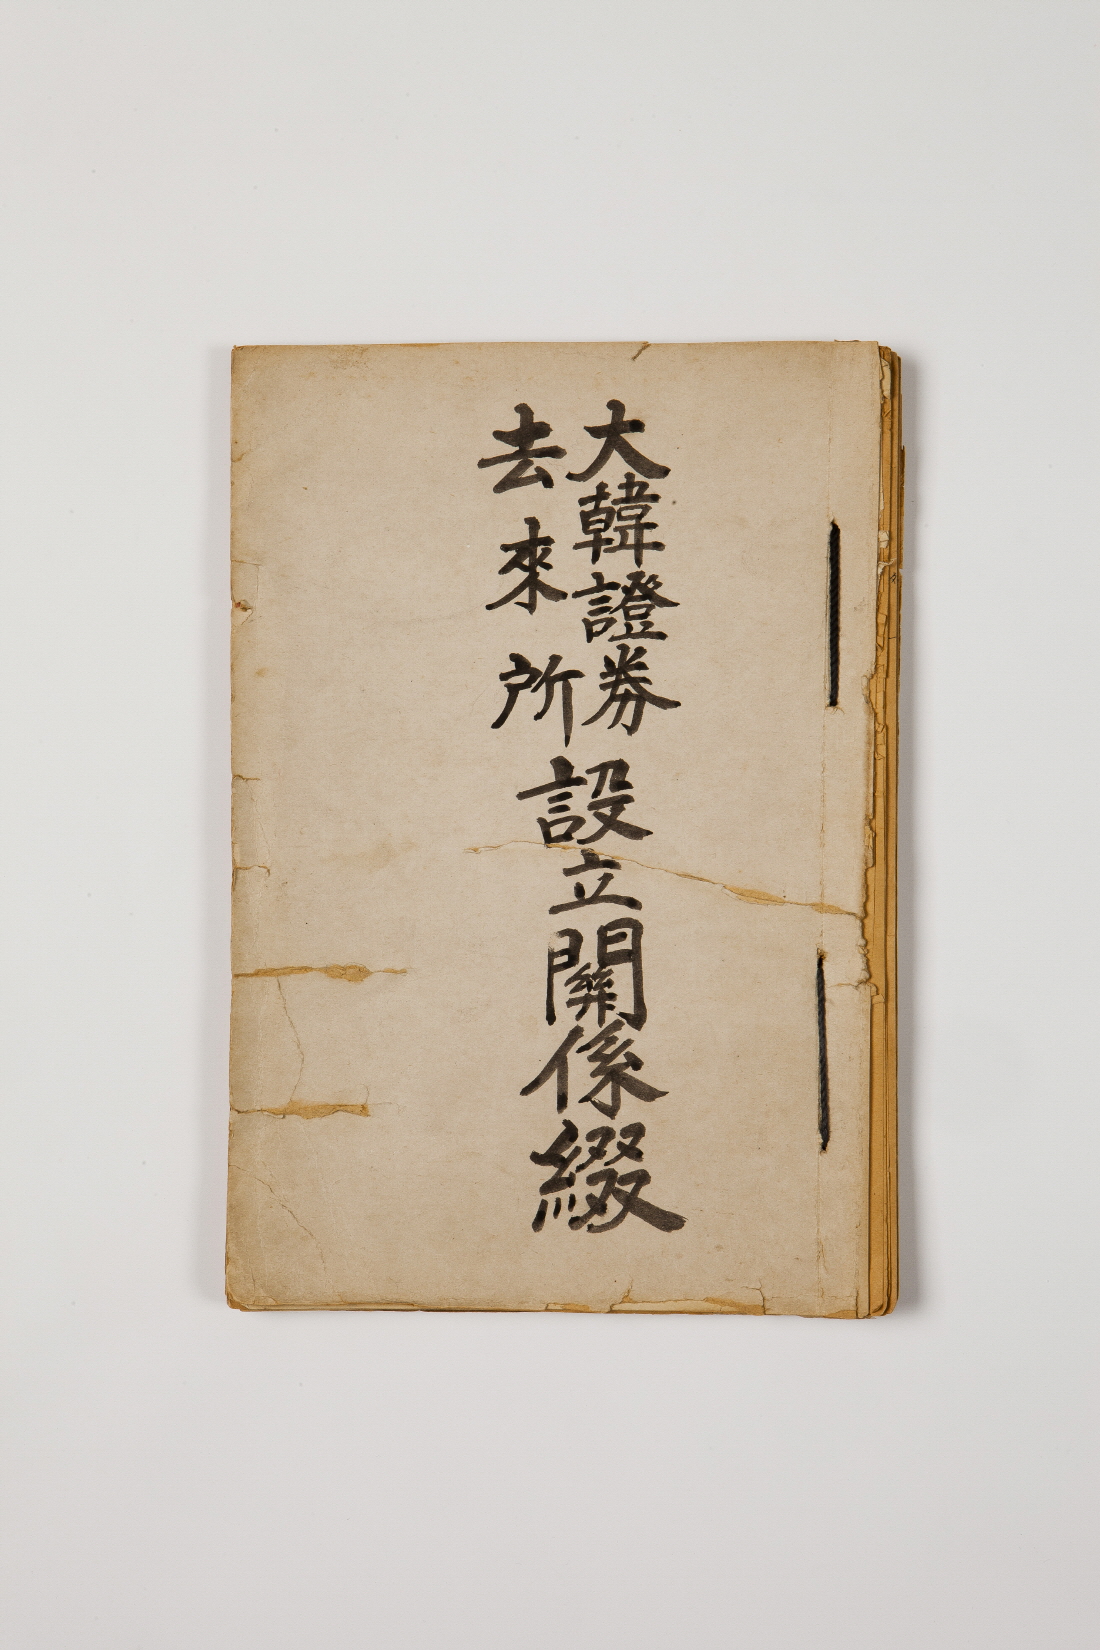 大韓證券
去來所
設立關係綴